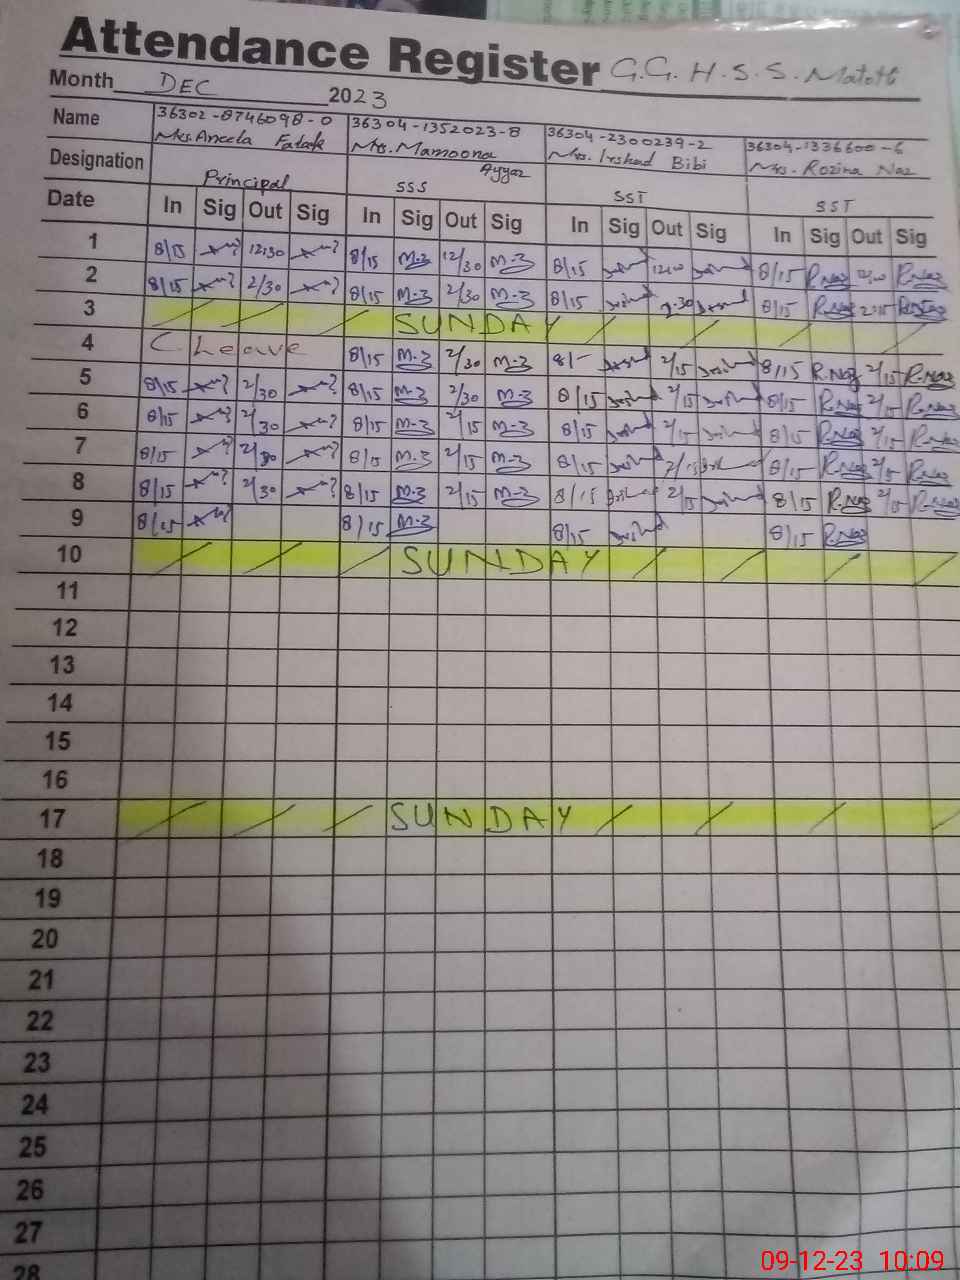 Attendance Register G.G.H.S.S. Matotli
Month DEC 2023
Name 36302-8746098-0 36304-1352023-8 36304-2300239-2 36304-1336600-6
Mrs. Aneela Mrs. Mamoona Ayyaz Mrs. Irshad Bibi Mrs. Rozina Naz
Designation Principal SSS SST SST
Date In Sig Out Sig In Sig Out Sig In Sig Out Sig In Sig Out Sig
1 8/15 12:30 8/15 M-3 12/30 M-3 8/15 12:00 8/15 R.Naz 12:00 R.Naz
2 8/15 2/30 8/15 M-3 2/30 M-3 8/15 2:30 8/15 R.Naz 2:15 R.Naz
3 SUNDAY
4 C. Leave 8/15 M-3 2/30 M-3 8/- 2/15 8/15 R.Naz 2/15 R.Naz
5 8/15 2/30 8/15 M-3 2/30 M-3 8/15 2/15 8/15 R.Naz 2/15 R.Naz
6 8/15 2/30 8/15 M-3 2/15 M-3 8/15 2/15 8/15 R.Naz 2/15 R.Naz
7 8/15 2/30 8/15 M-3 2/15 M-3 8/15 2/15 8/15 R.Naz 2/15 R.Naz
8 8/15 2/30 8/15 M-3 2/15 M-3 8/15 2/15 8/15 R.Naz 2/15 R.Naz
9 8/15 8/15 M-3 8/15 8/15 R.Naz
10 SUNDAY
11
12
13
14
15
16
17 SUNDAY
18
19
20
21
22
23
24
25
26
27
28
09-12-23 10:09